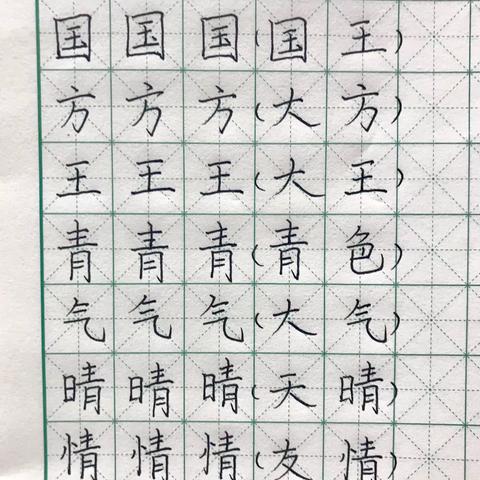 国国国(国王)
方方方(大方)
王王王(大王)
青青青(青色)
气气气(大气)
晴晴晴(天晴)
情情情(友情)